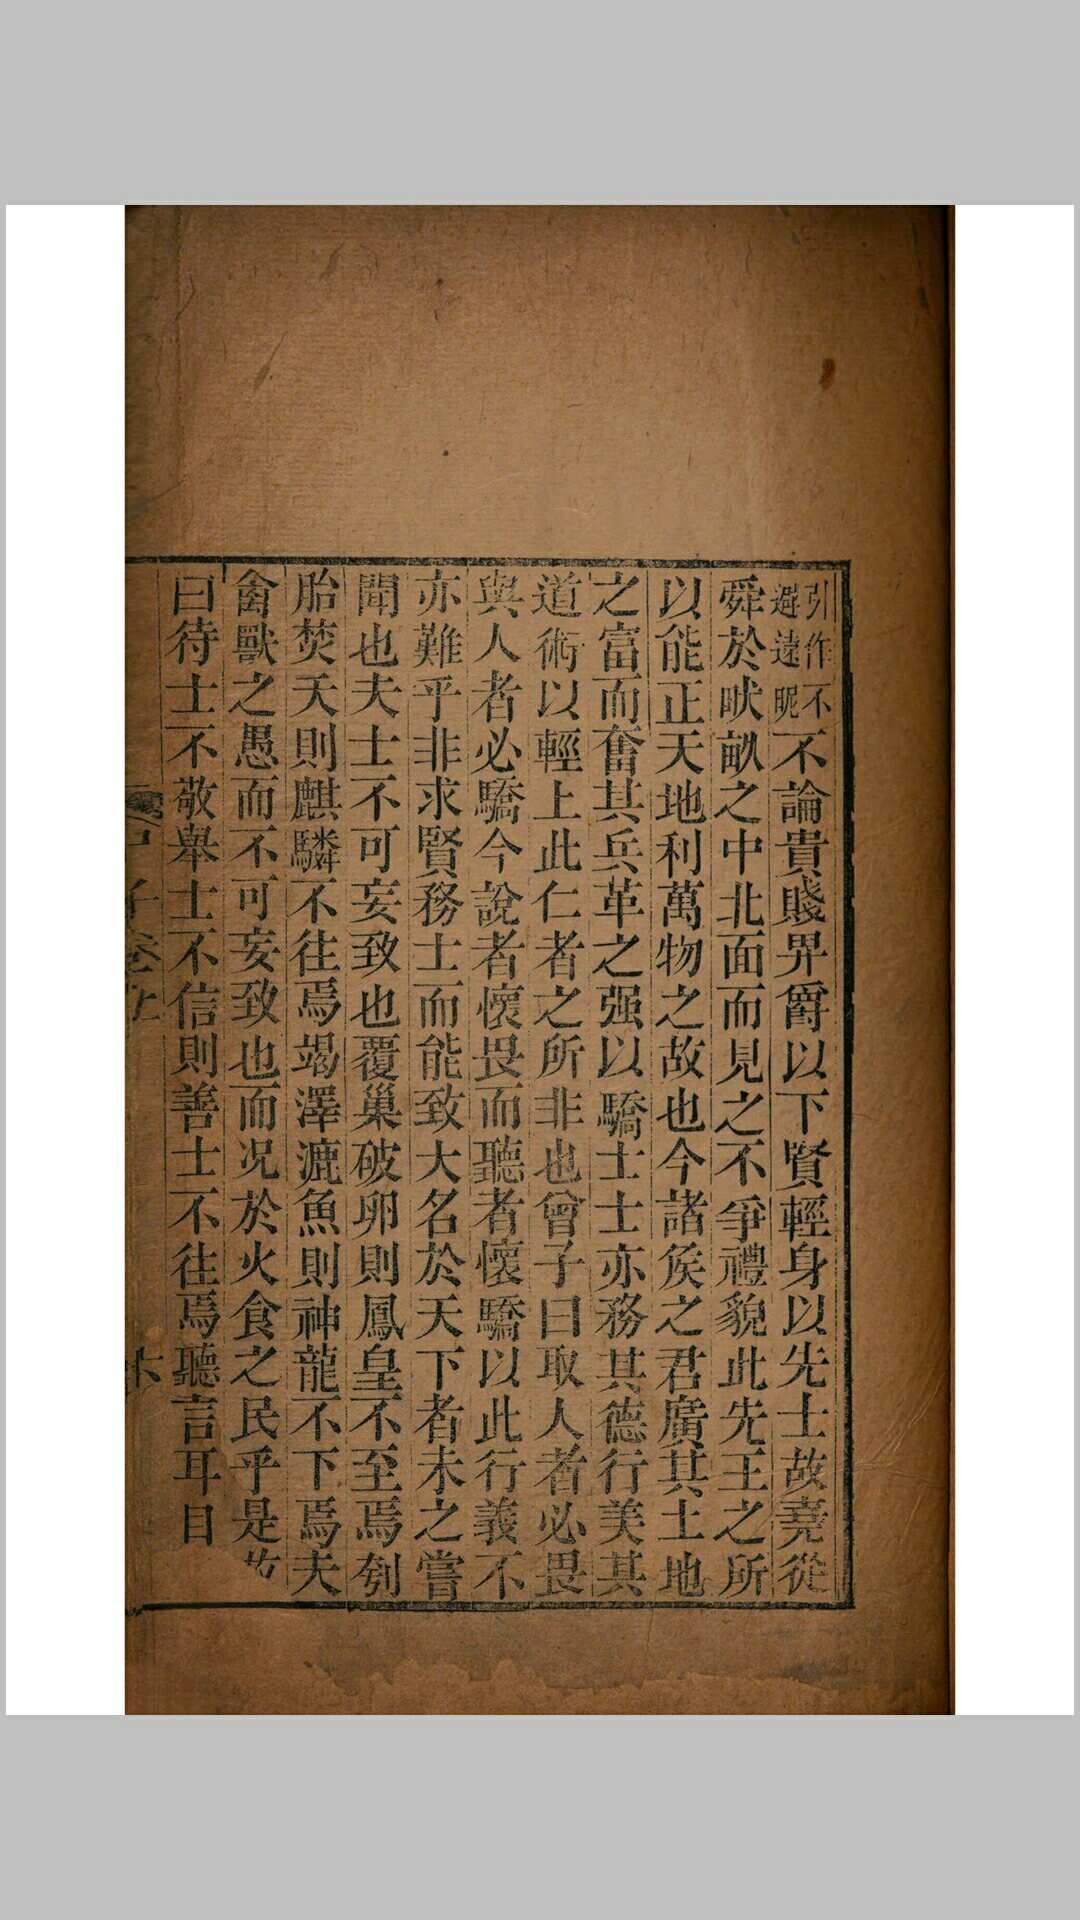 引作不
避遠昵
不論貴賤畀爵以下賢輕身以先士故堯從
舜於畎畝之中北面而見之不爭禮貌此先王之所
以能正天地利萬物之故也今諸矦之君廣其土地
之富而奮其兵革之强以驕士士亦務其德行美其
道術以輕上此仁者之所非也曾子曰取人者必畏
與人者必驕今說者懷畏而聽者懷驕以此行義不
亦難乎非求賢務士而能致大名於天下者未之嘗
聞也夫士不可妄致也覆巢破卵則鳳皇不至焉刳
胎焚夭則麒麟不往焉竭澤漉魚則神龍不下焉夫
禽獸之愚而不可妄致也而况於火食之民乎是故
曰待士不敬舉士不信則善士不往焉聽言耳目
子卷上